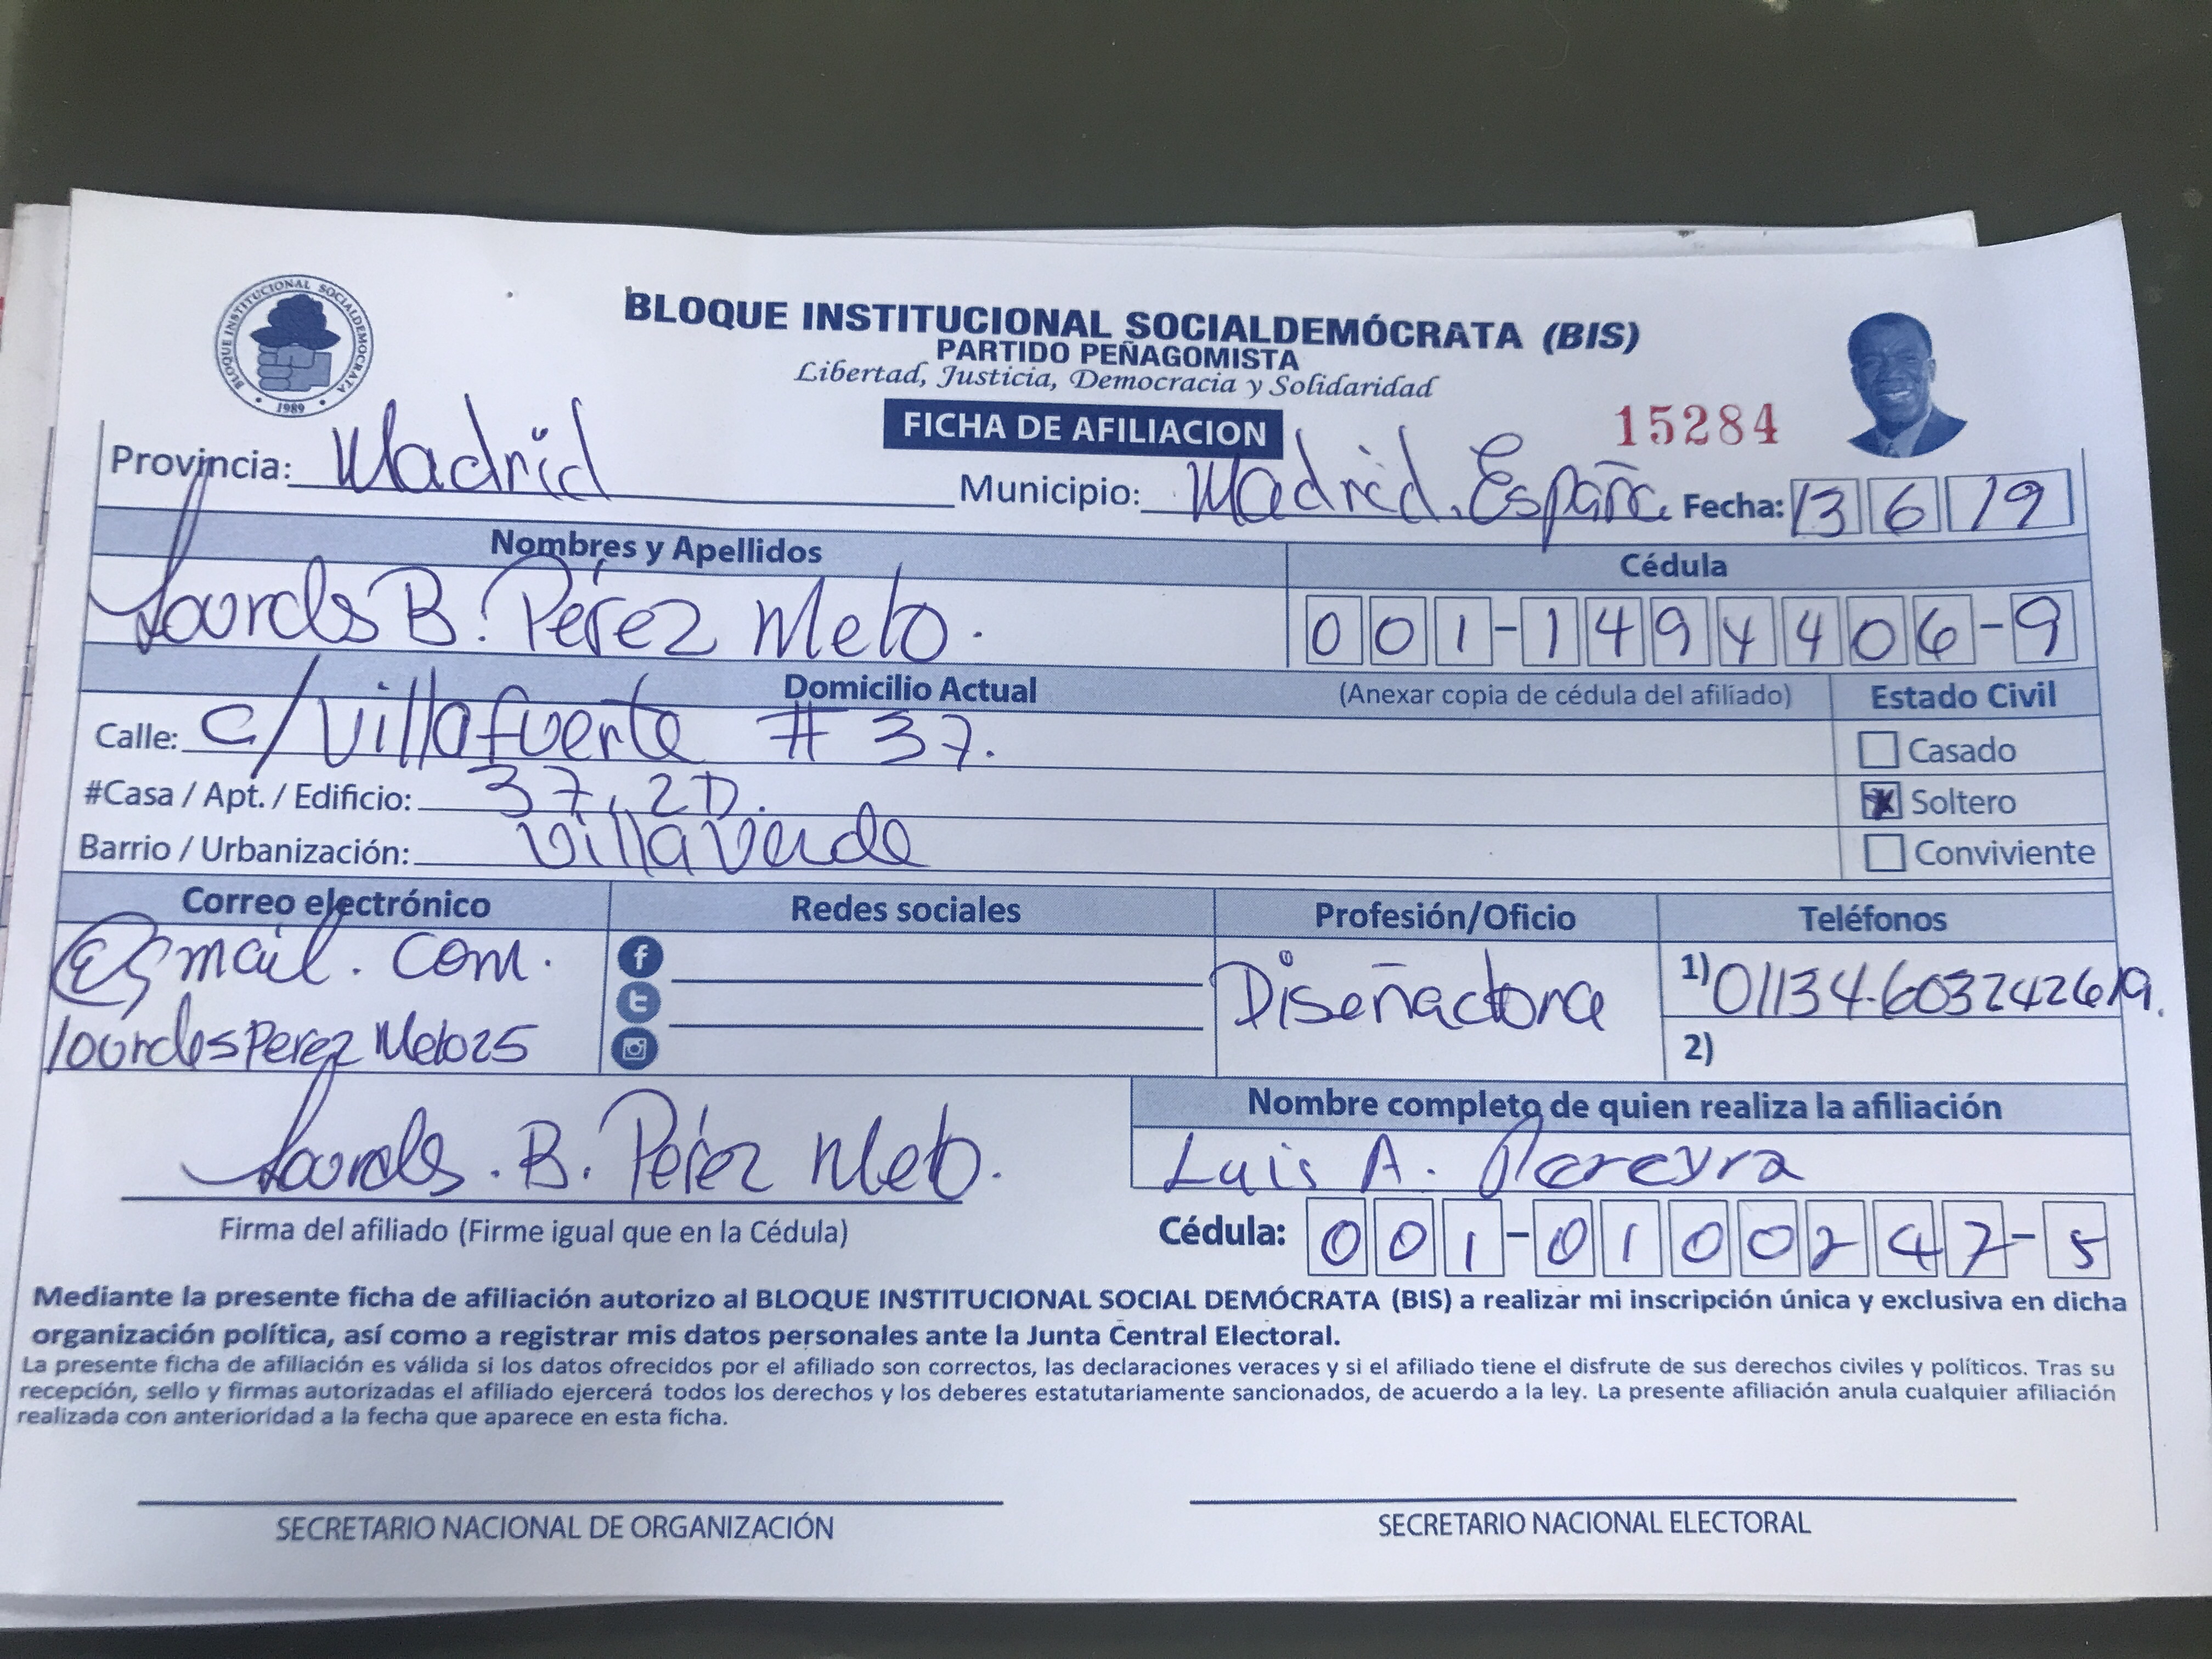 BLOQUE INSTITUCIONAL SOCIALDEMOCRATA
1989
BLOQUE INSTITUCIONAL SOCIALDEMÓCRATA (BIS)
PARTIDO PEÑAGOMISTA
Libertad, Justicia, Democracia y Solidaridad
FICHA DE AFILIACION
15284
Provincia: Madrid Municipio: Madrid. España Fecha: 13 6 19
Nombres y Apellidos Cédula
Lourdes B. Pérez Melo. 001-1494406-9
Domicilio Actual (Anexar copia de cédula del afiliado) Estado Civil
Calle: c/Villafuerte # 37. Casado
#Casa / Apt. / Edificio: 37, 2D. Soltero
Barrio / Urbanización: Villaverde Conviviente
Correo electrónico Redes sociales Profesión/Oficio Teléfonos
@gmail.com. f Diseñadora 1) 01134-603242619.
lourdesPerezMelo25 2)
Nombre completo de quien realiza la afiliación
Lourdes. B. Pérez Melo. Luis A. Pereyra
Firma del afiliado (Firme igual que en la Cédula) Cédula: 001-0100247-5
Mediante la presente ficha de afiliación autorizo al BLOQUE INSTITUCIONAL SOCIAL DEMÓCRATA (BIS) a realizar mi inscripción única y exclusiva en dicha
organización política, así como a registrar mis datos personales ante la Junta Central Electoral.
La presente ficha de afiliación es válida si los datos ofrecidos por el afiliado son correctos, las declaraciones veraces y si el afiliado tiene el disfrute de sus derechos civiles y políticos. Tras su
recepción, sello y firmas autorizadas el afiliado ejercerá todos los derechos y los deberes estatutariamente sancionados, de acuerdo a la ley. La presente afiliación anula cualquier afiliación
realizada con anterioridad a la fecha que aparece en esta ficha.
SECRETARIO NACIONAL DE ORGANIZACIÓN SECRETARIO NACIONAL ELECTORAL